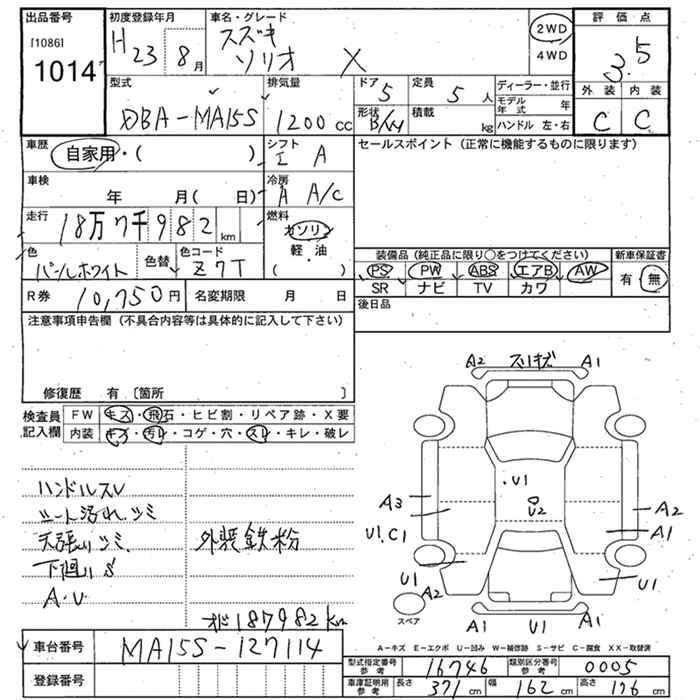 出品番号
[1086]
1014
初度登録年月
H 23 8月
車名・グレード
スズキ
ソリオ X
2WD
4WD
評価点
3.5
外装 内装
C C
型式
DBA-MA15S
排気量
1200cc
ドア 5
形状
定員 5人
積載 kg
ディーラー・並行
モデル年式 年
ハンドル 左・右
車歴
自家用・( )
シフト
A
セールスポイント (正常に機能するものに限ります)
車検
年 月( 日)
冷房
A A/C
走行
18万7千982km
燃料
ガソリン
軽・油
・( )
色
パールホワイト
色替
色コード
Z7T
装備品 (純正品に限り○をつけてください)
新車保証書
PS PW ABS エアB AW
SR ナビ TV カワ
有・無
R券 10,750円
名変期限 月 日
後日品
注意事項申告欄 (不具合内容等は具体的に記入して下さい)
修復歴 有 [箇所 ]
検査員記入欄
FW キズ・飛石・ヒビ割・リペア跡・X要
内装 キズ・汚レ・コゲ・穴・スレ・キレ・破レ
ハンドルスレ
シート汚れ、シミ
天張りシミ
下廻りS
A・U
外装鉄粉
187982km
A2 スリキズ A1
U1
U2
A3
U1.C1
A2
A1
U1
A2
U1
スペア
A1 U1 A1
A-キズ E-エクボ U-凹み W-補修跡 S-サビ C-腐食 XX-取替済
車台番号 MA15S-127114
登録番号
型式指定番号 参考 16746
類別区分番号 参考 0005
車庫証明用 参考 長さ 371cm 幅 162cm 高さ 176cm